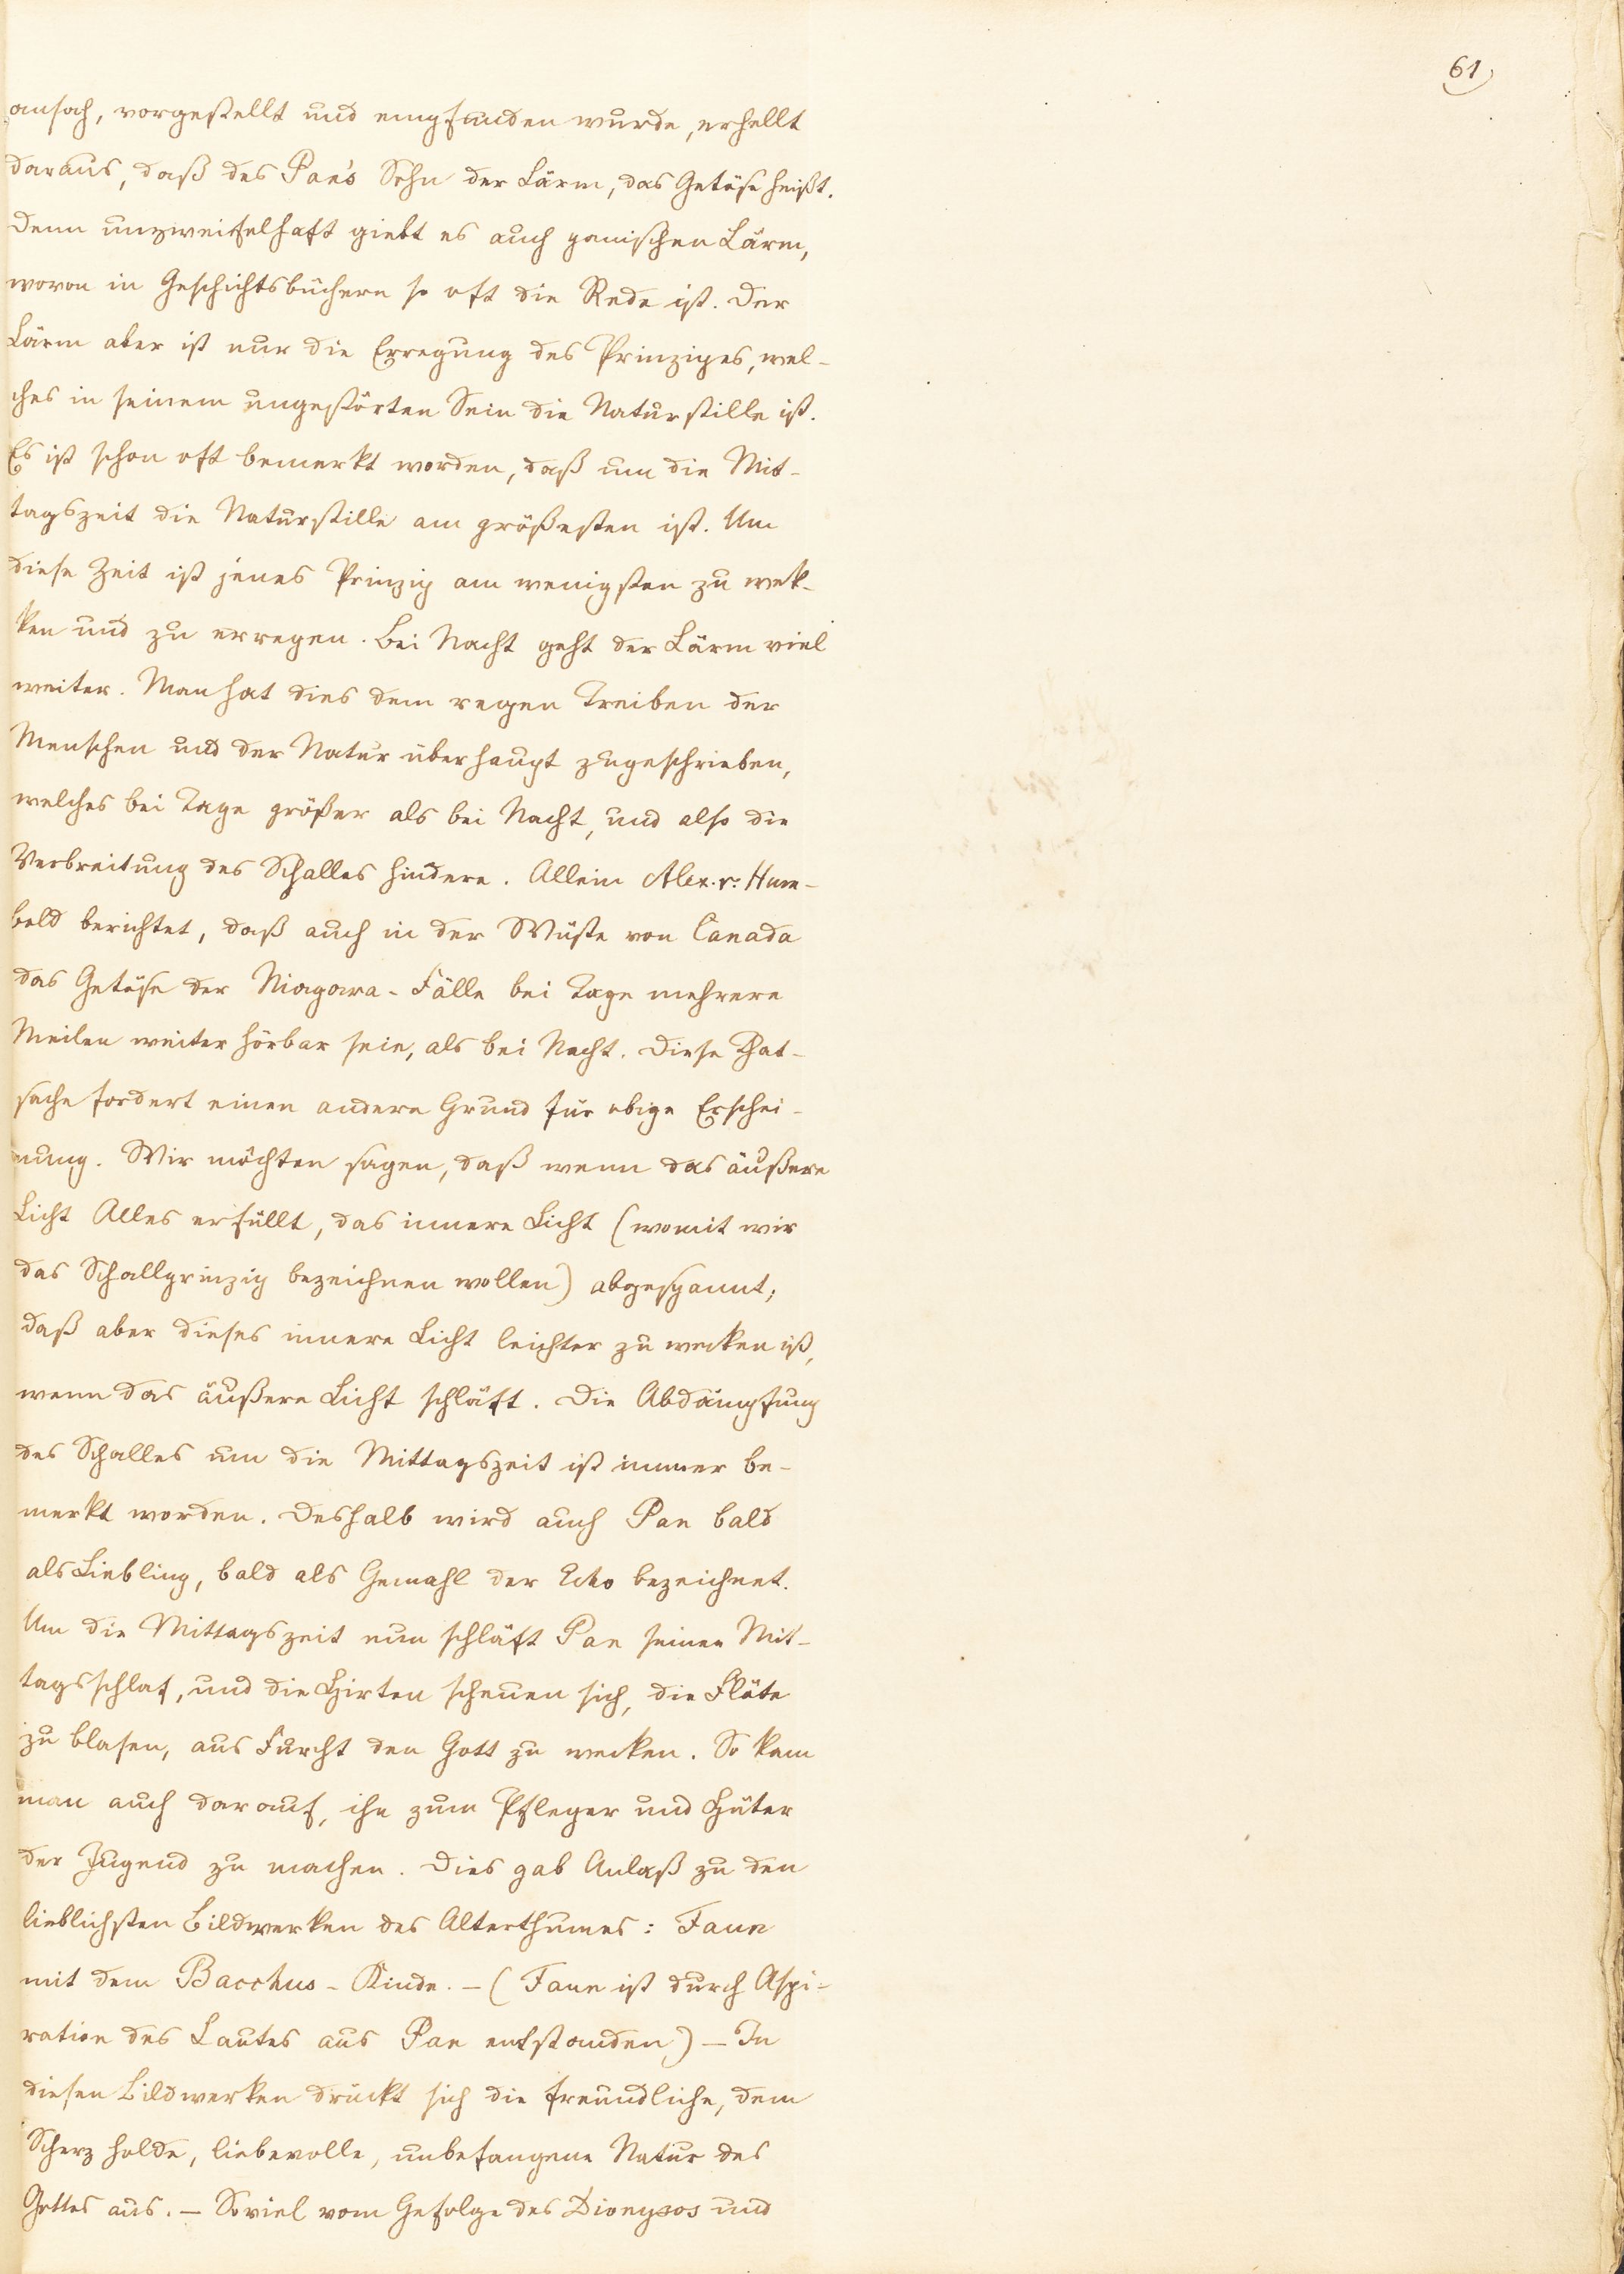 61)
ansah, vorgestellt und empfunden wurde, erhellt
daraus, daß des Pan's Sohn der Lärm, das Getöse heißt.
Denn unzweifelhaft giebt es auch panischen Lärm,
wovon in Geschichtsbüchern so oft die Rede ist. Der
Lärm aber ist nur die Erregung des Prinzipes, wel-
ches in seinem ungestörten Sein die Naturstille ist.
Es ist schon oft bemerkt worden, daß um die Mit-
tagszeit die Naturstille am größesten ist. Um
diese Zeit ist jenes Prinzip am wenigsten zu wek-
ken und zu erregen. Bei Nacht geht der Lärm viel
weiter. Man hat dies dem regen Treiben der
Menschen und der Natur überhaupt zugeschrieben,
welches bei Tage größer als bei Nacht, und also die
Verbreitung des Schalles hindere. Allein Alex. v. Hum-
bold berichtet, daß auch in der Wüste von Canada
das Getöse der Niagara-Fälle bei Tage mehrere
Meilen weiter hörbar sein, als bei Nacht. Diese That-
sache fordert einen andern Grund für obige Erschei-
nung. Wir möchten sagen, daß wenn das äußere
Licht Alles erfüllt, das innere Licht (womit wir
das Schallprinzip bezeichnen wollen) abgespannt;
daß aber dieses innere Licht leichter zu wecken ist,
wenn das äußere Licht schläft. Die Abdämpfung
des Schalles um die Mittagszeit ist immer be-
merkt worden. Deshalb wird auch Pan bald
als Liebling, bald als Gemahl der Echo bezeichnet.
Um die Mittagszeit nun schläft Pan seinen Mit-
tagsschlaf, und die Hirten scheuen sich, die Flöte
zu blasen, aus Furcht den Gott zu wecken. So kam
man auch darauf, ihn zum Pfleger und Hüter
der Jugend zu machen. Dies gab Anlaß zu den
lieblichsten Bildwerken des Alterthumes: Faun
mit dem Bacchus-Kinde. – (Faun ist durch Aspi-
ration des Lautes aus Pan entstanden) – In
diesen Bildwerken drückt sich die freundliche, dem
Scherz holde, liebevolle, unbefangene Natur des
Gottes aus. – Soviel vom Gefolge des Dionysos und